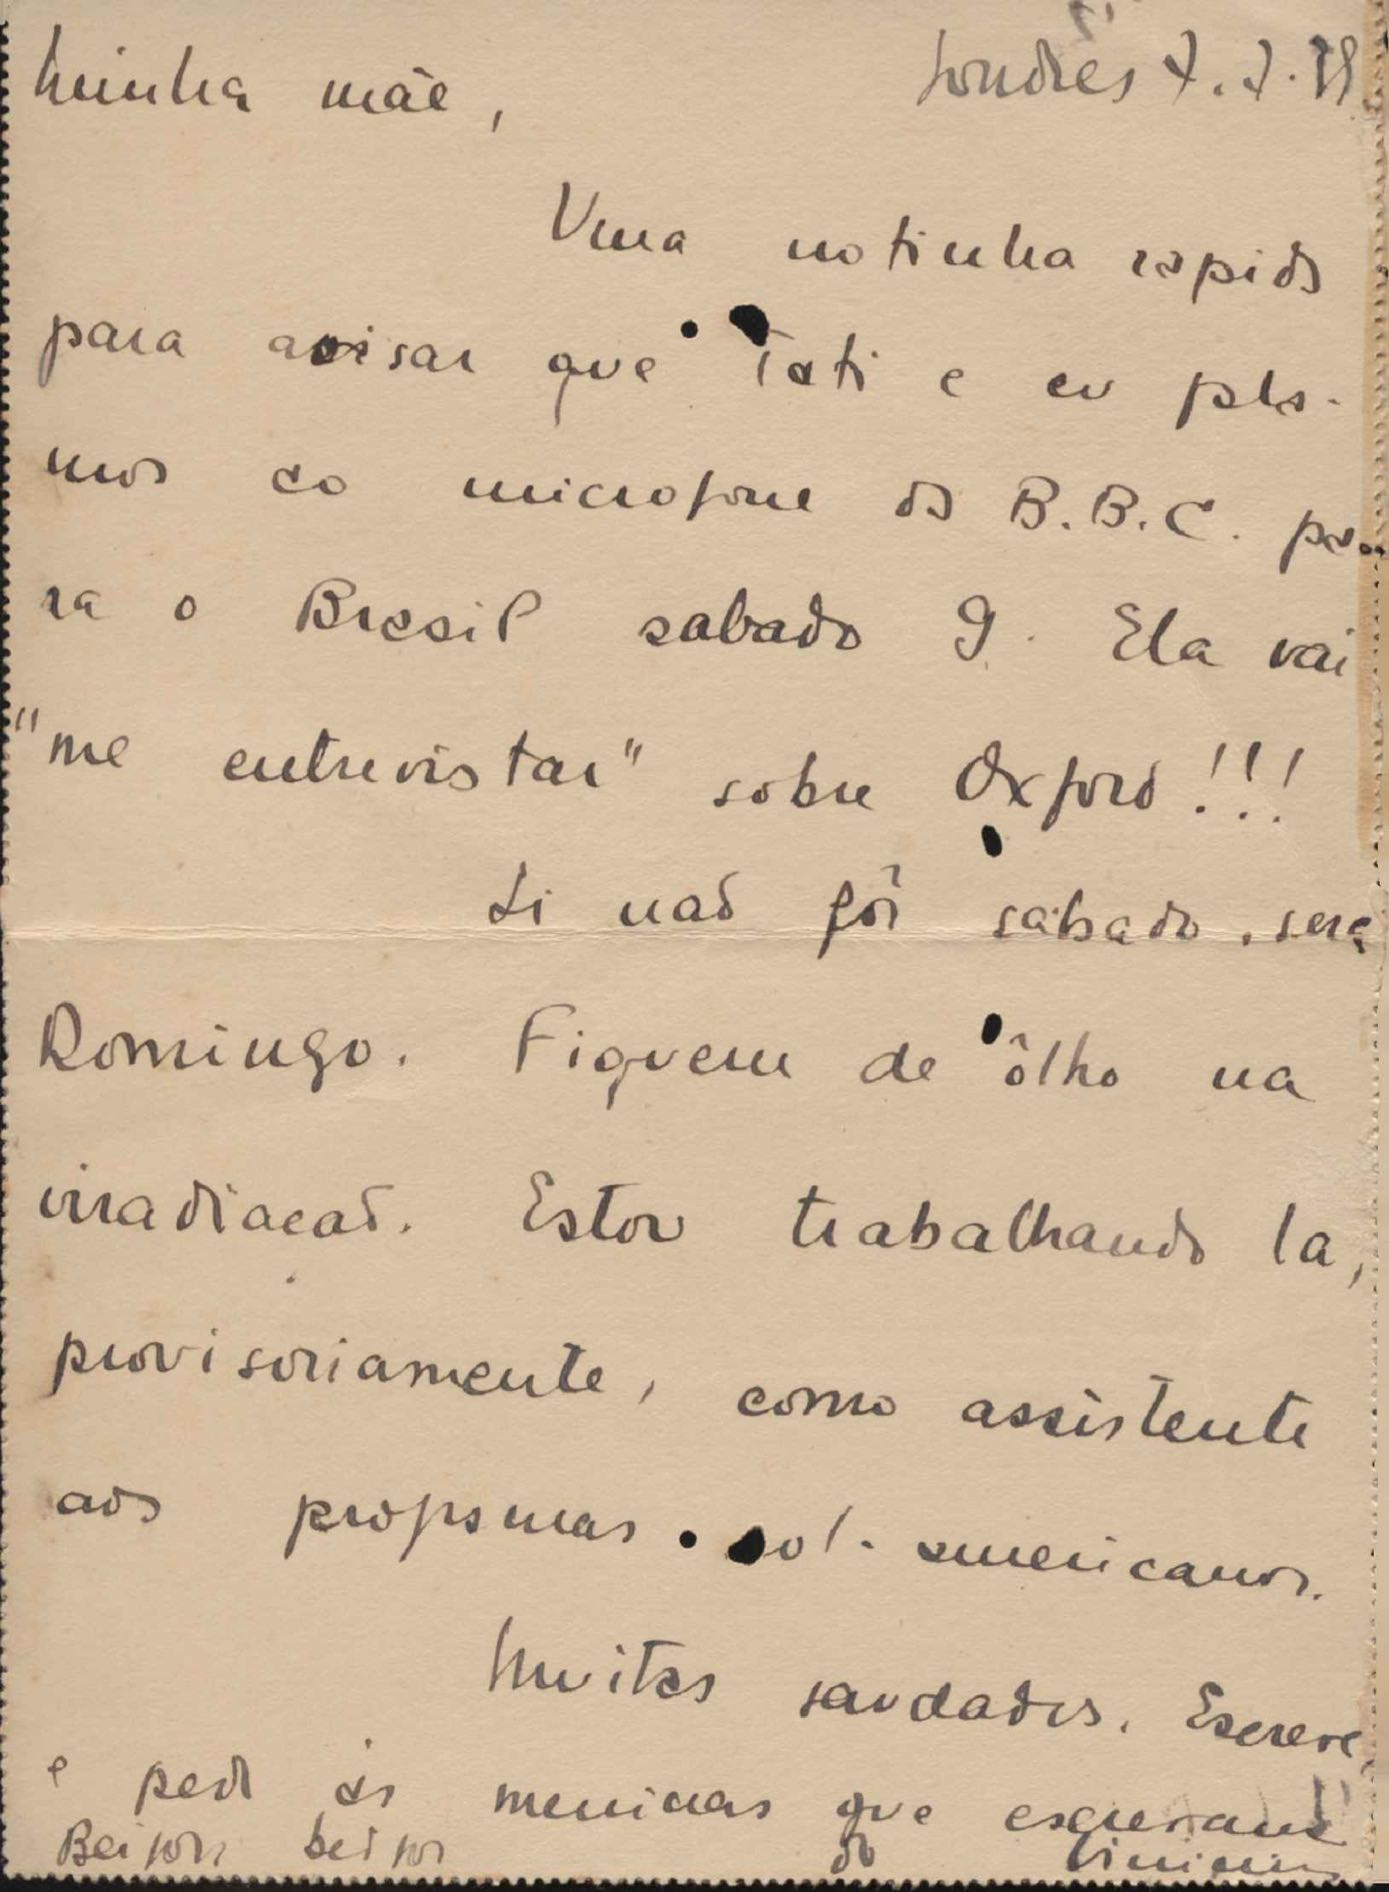 Minha mãe, Londres 7.7.39
Uma notinha rapida
para avisar que Tati e eu fala-
mos ao microfone da B.B.C. pa-
ra o Brasil sabado 9. Ela vai
"me entrevistar" sobre Oxford!!!
Si não fôr sabado, será
Domingo. Fiquem de ôlho na
irradiacão. Estou trabalhando la,
provisoriamente, como assistente
aos programas sul-americanos.
Muitas saudades. Escreve
e pede às meninas que escrevam
Beijos, beijos do Vinicius